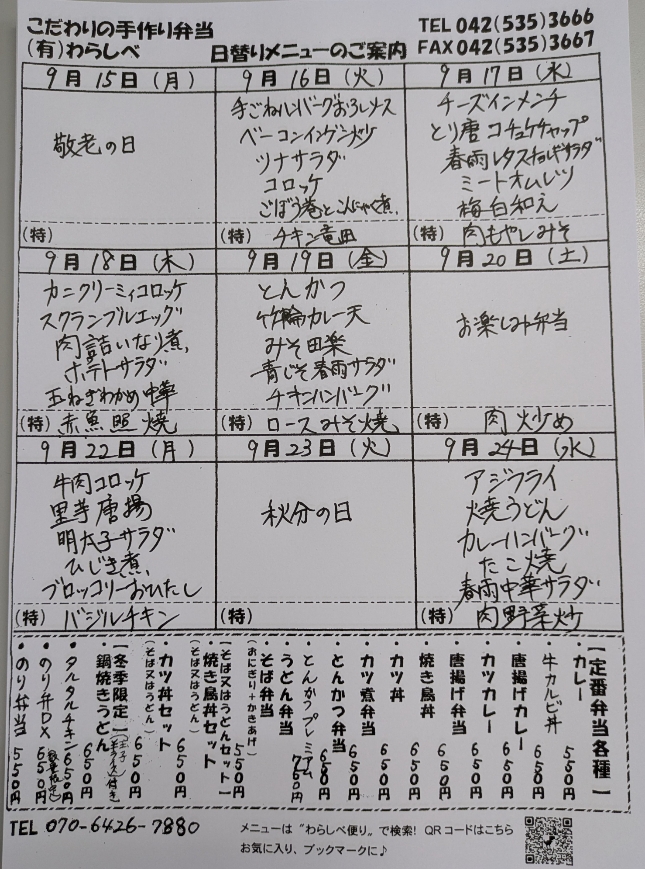 こだわりの手作り弁当
(有)わらしべ
日替りメニューのご案内
TEL 042(535)3666
FAX 042(535)3667
9月15日(月)
敬老の日
(特)
9月16日(火)
手ごねハンバーグおろしソース
ベーコンインゲン炒
ツナサラダ
コロッケ
ごぼう巻とこんにゃく煮
(特) チキン竜田
9月17日(水)
チーズインメンチ
とり唐コチュケチャップ
春雨レタスチョレギサラダ
ミートオムレツ
梅白和え
(特) 肉もやしみそ
9月18日(木)
カニクリーミィコロッケ
スクランブルエッグ
肉詰いなり煮
ポテトサラダ
玉ねぎわかめ中華
(特) 赤魚照焼
9月19日(金)
とんかつ
竹輪カレー天
みそ田楽
青じそ春雨サラダ
チキンハンバーグ
(特) ロースみそ焼
9月20日(土)
お楽しみ弁当
(特) 肉炒め
9月22日(月)
牛肉コロッケ
里芋唐揚
明太子サラダ
ひじき煮
ブロッコリーおひたし
(特) バジルチキン
9月23日(火)
秋分の日
(特)
9月24日(水)
アジフライ
焼うどん
カレーハンバーグ
たこ焼
春雨中華サラダ
(特) 肉野菜炒
【定番弁当各種】
・カレー 550円
・牛カルビ丼 650円
・唐揚げカレー 650円
・カツカレー 650円
・唐揚げ弁当 650円
・焼き鳥丼 650円
・カツ丼 650円
・カツ煮弁当 650円
・とんかつ弁当 680円
・とんかつプレミアム 750円
・うどん弁当
・そば弁当
(おにぎり+かきあげ) 550円
【そば又はうどんセット】
・焼き鳥丼セット 650円
(そば又はうどん)
・カツ丼セット 650円
(そば又はうどん)
【冬季限定】
鍋焼きうどん 650円
・タルタルチキン 650円
・のり弁DX 650円
・のり弁当 550円
TEL 070-6426-7880
メニューは"わらしべ便り"で検索! QRコードはこちら
お気に入り、ブックマークに♪